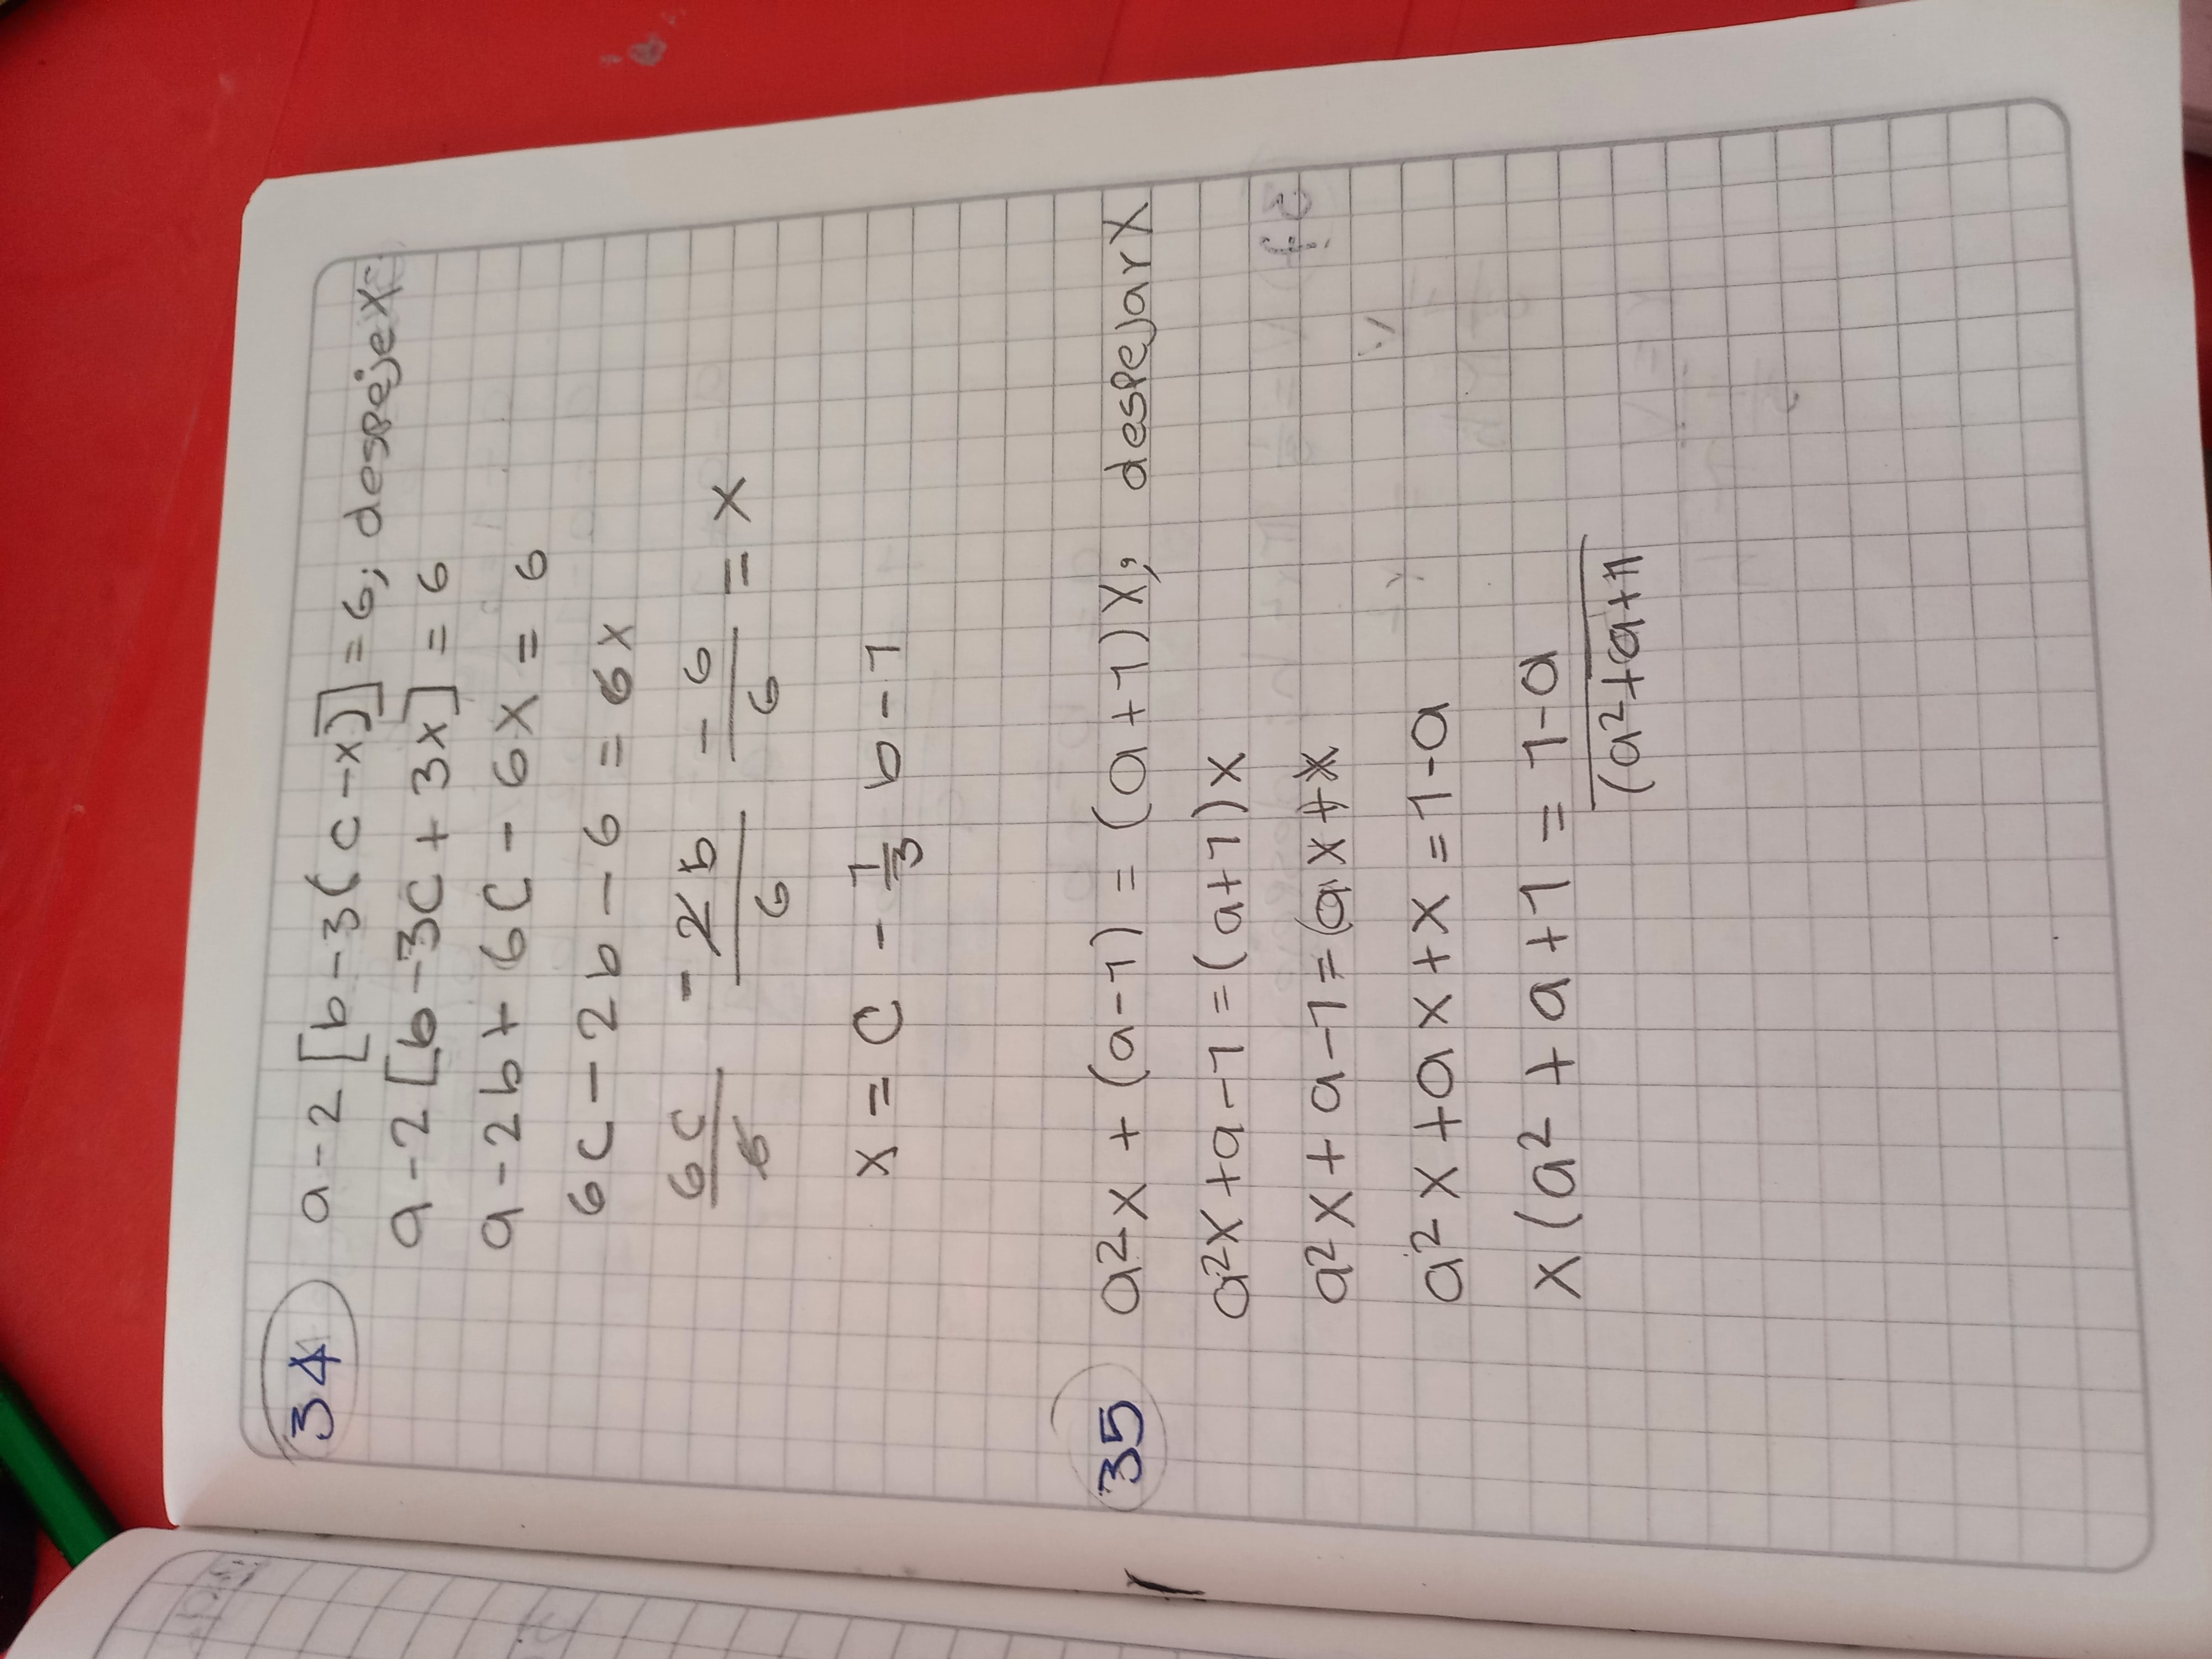 34 a - 2 [b - 3(c - x)] = 6; despeje x
a - 2 [b - 3c + 3x] = 6
a - 2b + 6c - 6x = 6
6c - 2b - 6 = 6x
6c/6 - 2b/6 - 6/6 = x
x = c - 1/3 b - 1
35 a²x + (a - 1) = (a + 1) x; despejar x
a²x + a - 1 = (a + 1) x
a²x + a - 1 = (ax + x
a²x + ax + x = 1 - a
x (a² + a + 1 = 1 - a / (a² + a + 1